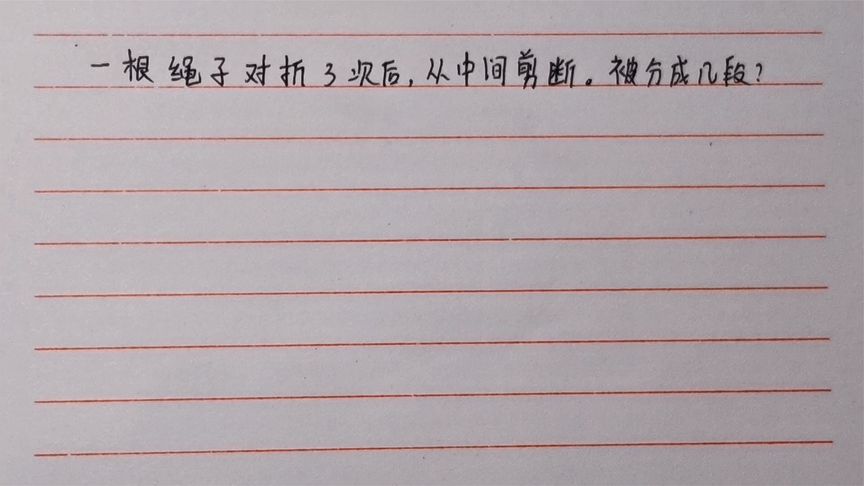 一根绳子对折3次后,从中间剪断。被分成几段?